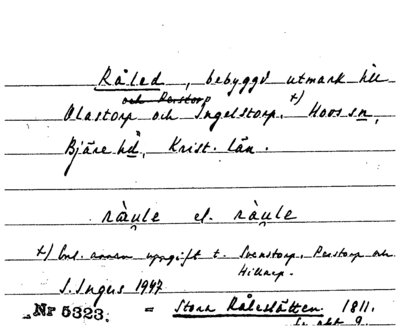 Råled, bebyggd utmark till
och Perstorp
Olastorp och Ingelstorp. +) Hovs sn,
Bjäre hd, Krist. län.
ràu̯le el. ràu̯le
+) Enl. annan uppgift t. Svenstorp, Perstorp och
Hillarp.
S. Ingers 1947
Nr 5323. = Stora Råleslätten 1811.